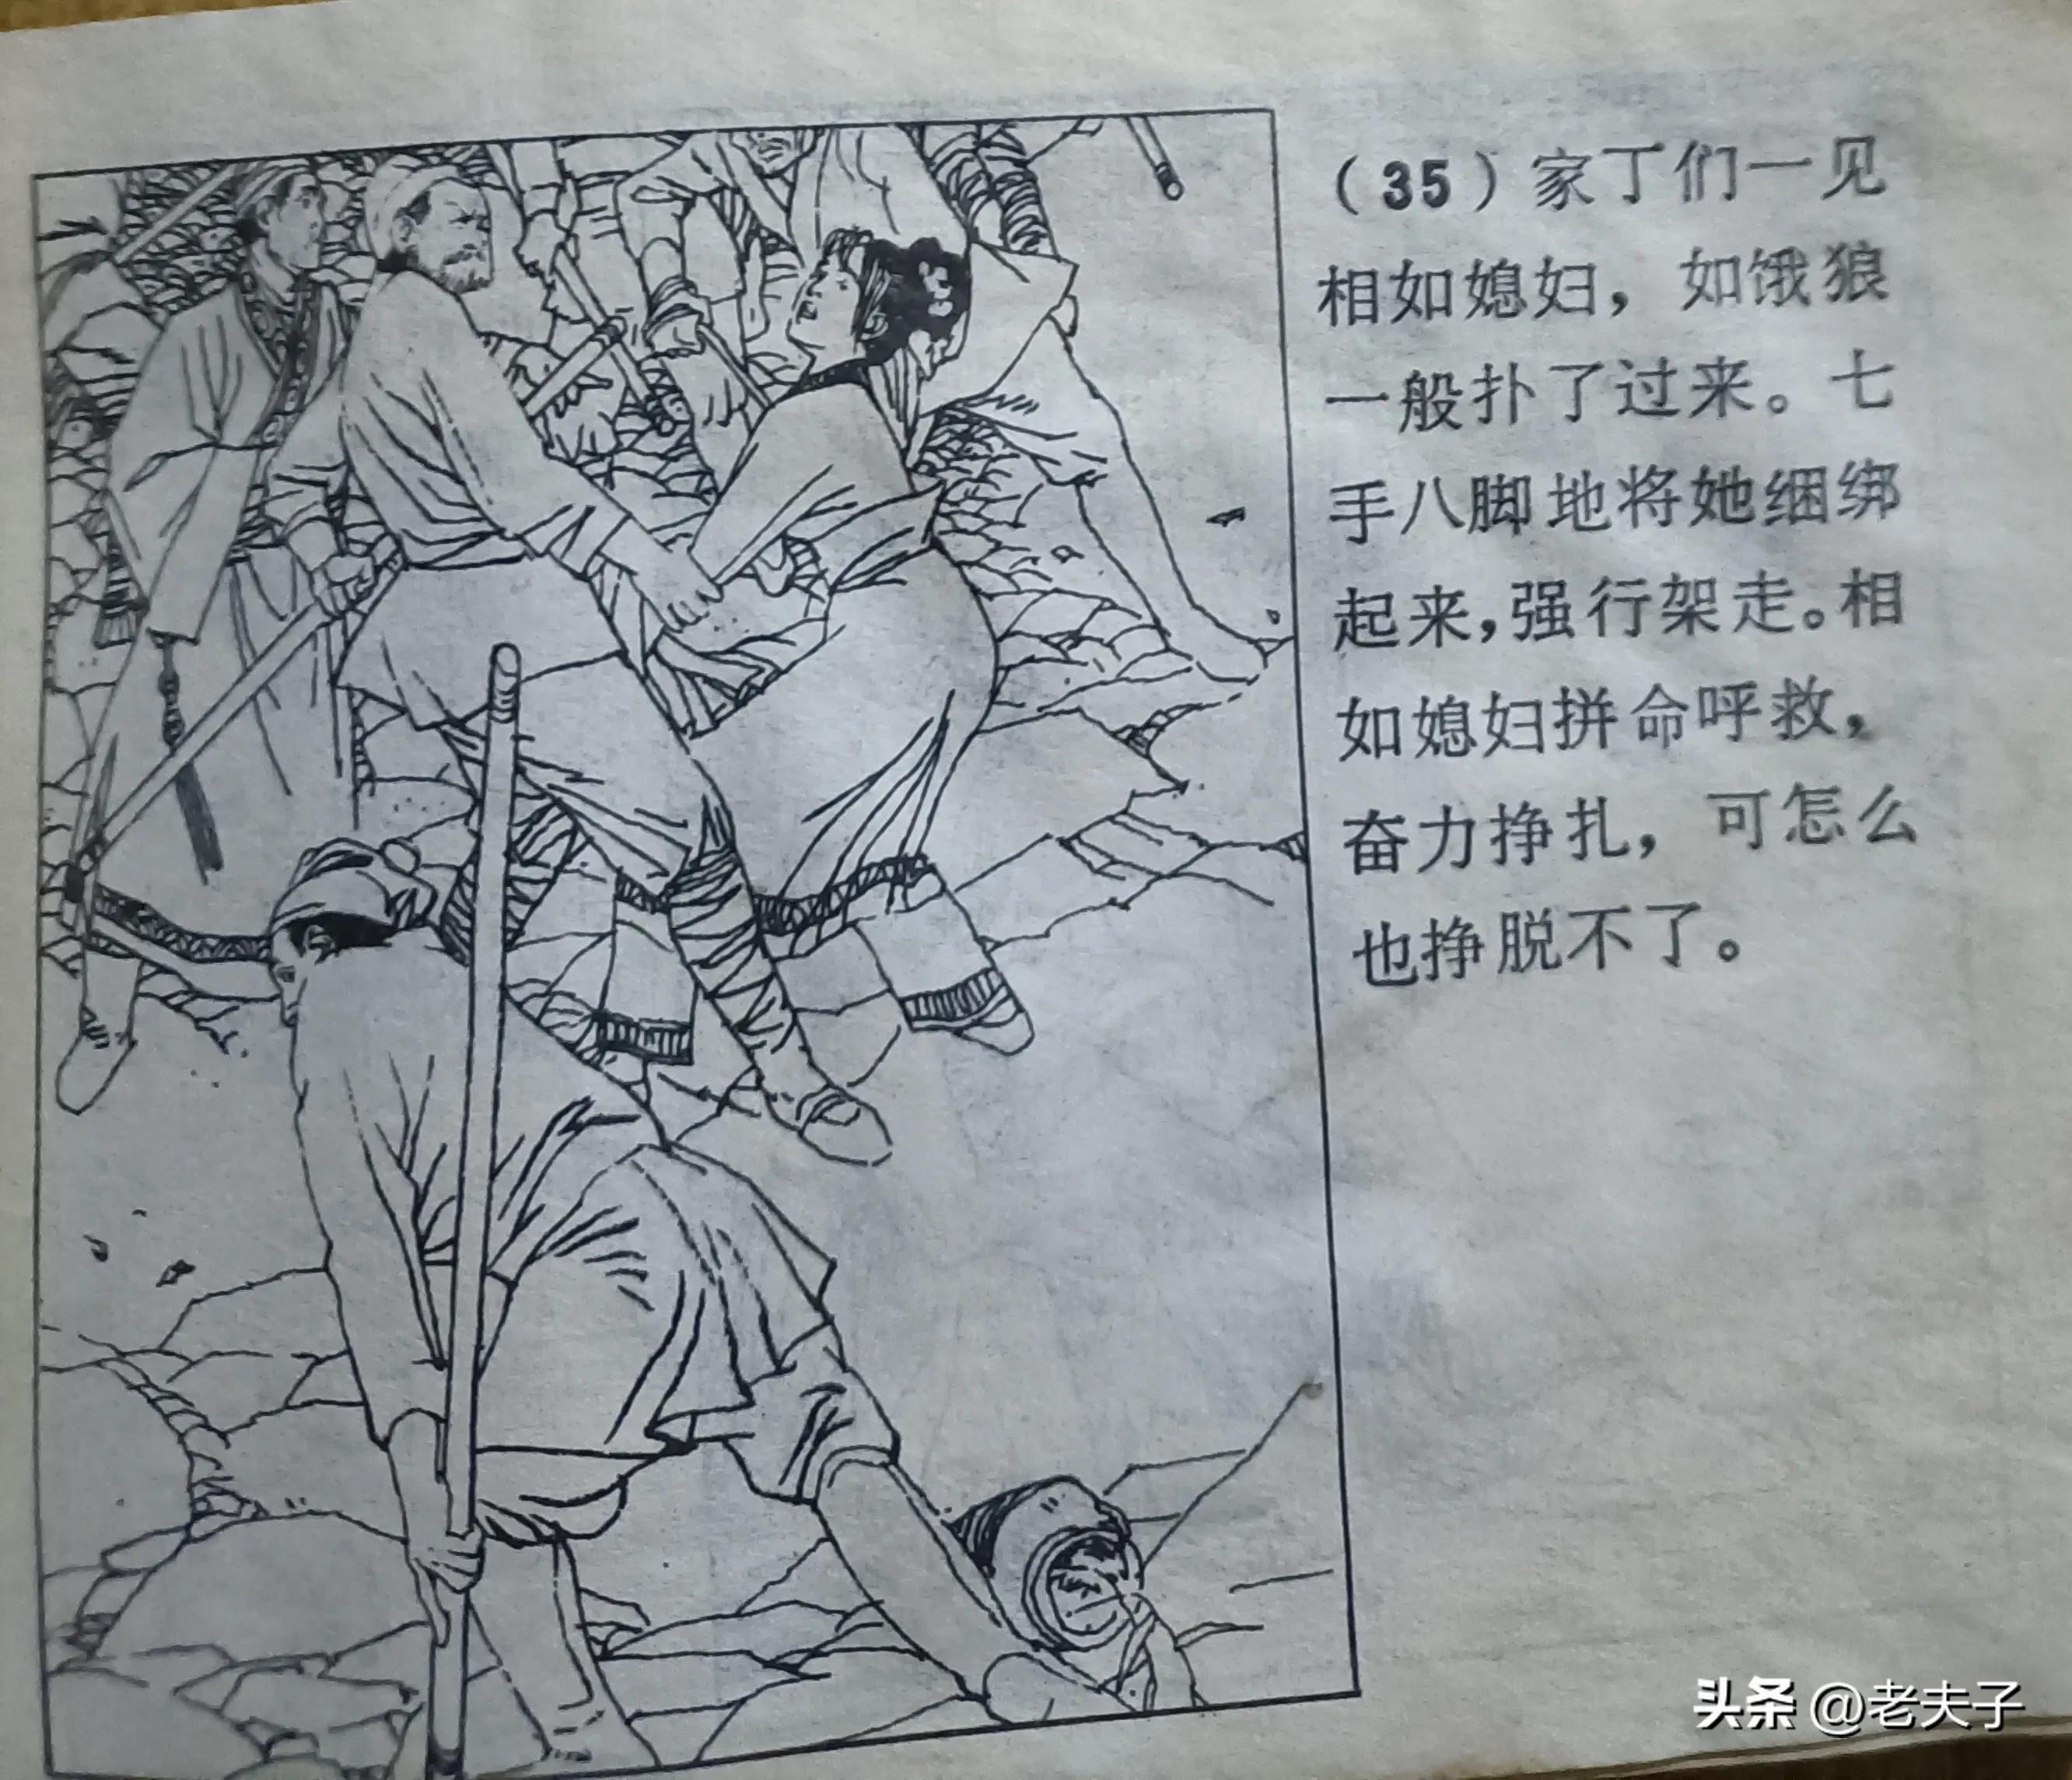 （35）家丁们一见
相如媳妇，如饿狼
一般扑了过来。七
手八脚地将她捆绑
起来，强行架走。相
如媳妇拼命呼救，
奋力挣扎，可怎么
也挣脱不了。
头条 @老夫子